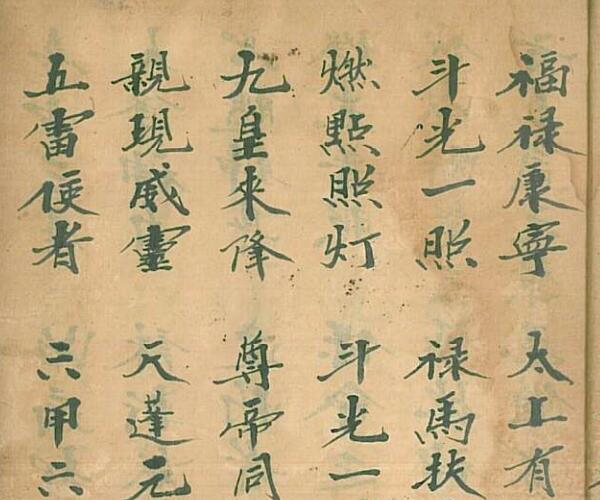 福禄康寧 太上有
斗光一照 禄馬扶
燃點照灯 斗光一
九皇來降 尊帝同
親現威靈 天蓬元
五雷使者 六甲六